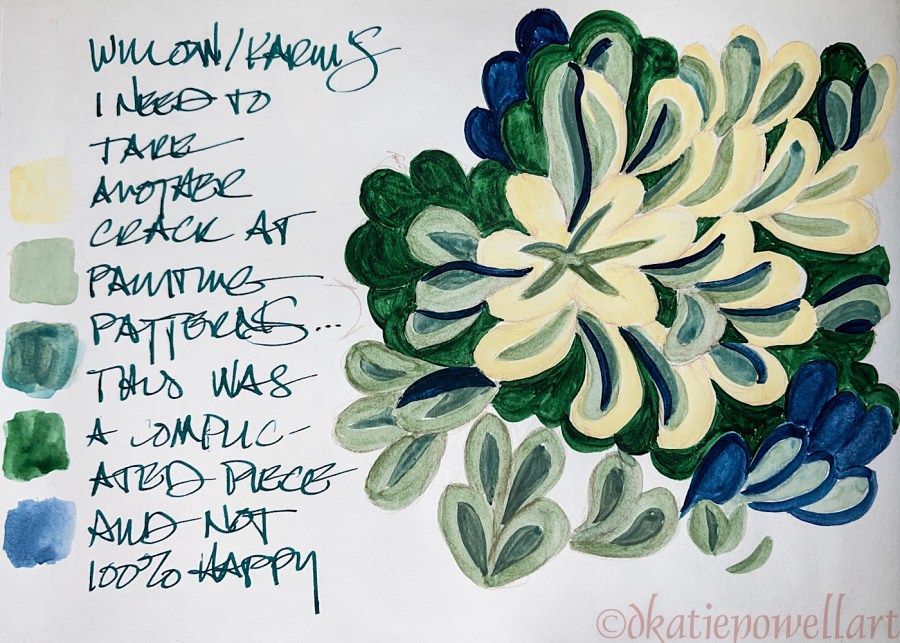 WILLOW/KARMS
I NEED TO
TAKE
ANOTHER
CRACK AT
PAINTING
PATTERNS...
THIS WAS
A COMPLIC-
ATED PIECE
AND NOT
100% HAPPY
©dkatiepowellart